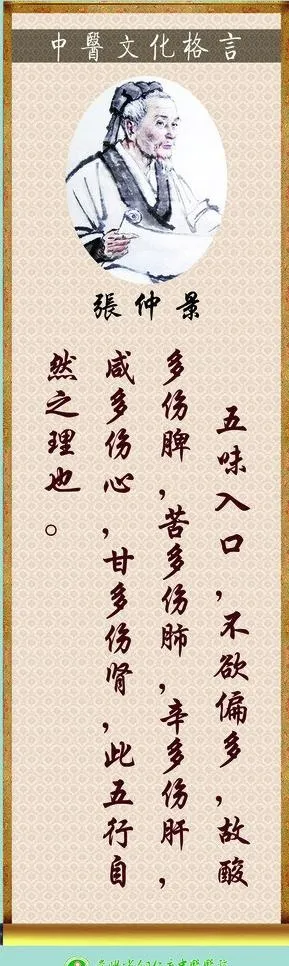 中醫文化格言
張仲景
五味入口，不欲偏多，故酸
多伤脾，苦多伤肺，辛多伤肝，
咸多伤心，甘多伤肾，此五行自
然之理也。